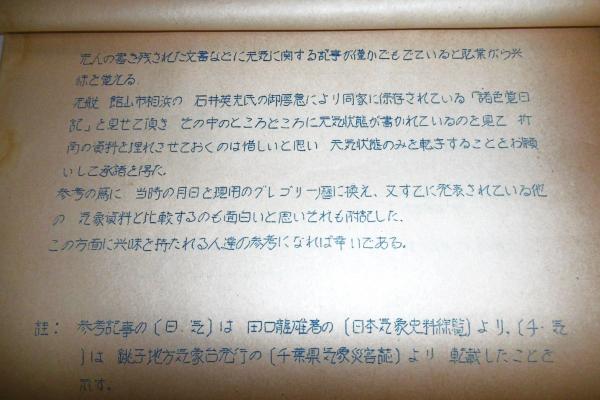 先人の書き残された文書などに天気に関する記事が僅かでもでていると職業がら興
味を覚える.
先般 館山市相浜の 石井英夫氏の御厚意により同家に保存されている「諸色覚日
記」を見せて頂き その中のところどころに天気状態が書かれているのを見て 折
角の資料を埋れさせておくのは惜しいと思い 天気状態のみを転写することをお願
いして承諾を得た.
参考の為に 当時の月日を現用のグレゴリー暦に換え、又すでに発表されている他
の 気象資料と比較するのも面白いと思いそれも附記した.
この方面に興味を持たれる人達の参考になれば幸いである.
註: 参考記事の〔日.気〕は 田口龍雄著の〔日本気象史料綜覧〕より、〔千・気
〕は 銚子地方気象台発行の〔千葉県気象災害誌〕より 転載したことを
示す.